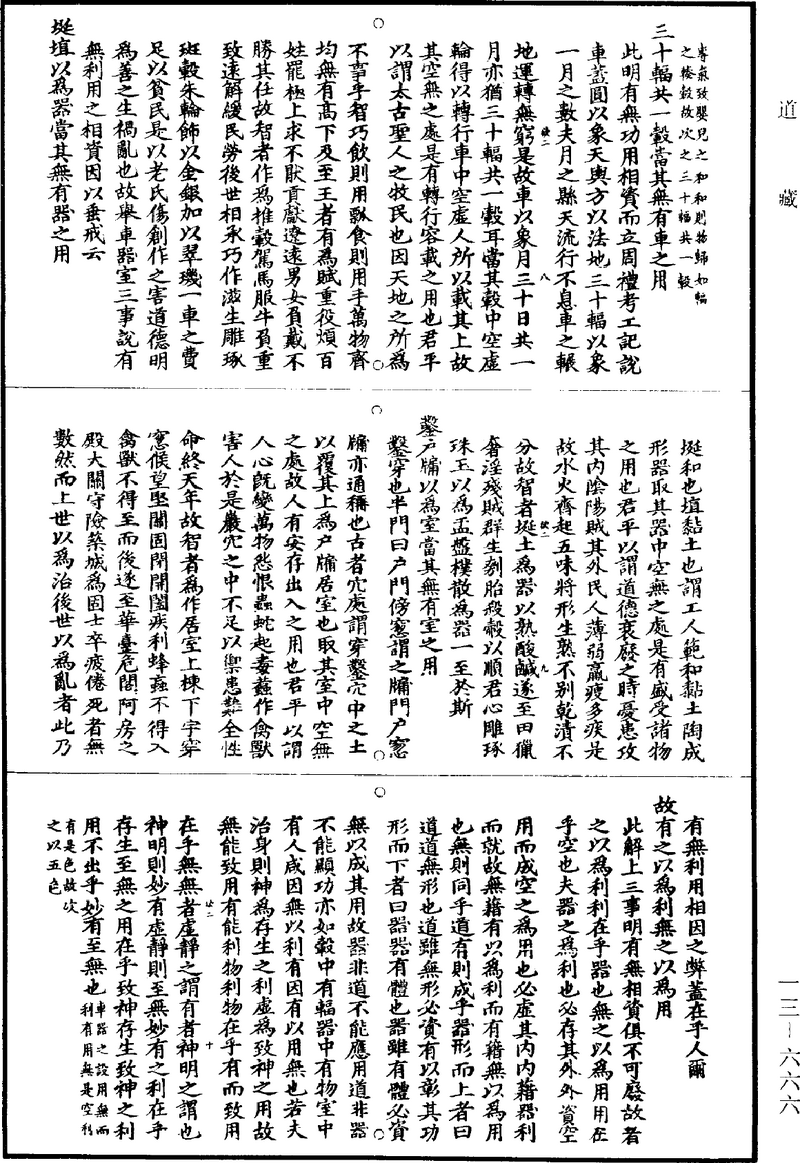 道藏
專氣致嬰兒之和和則物歸如輻
之湊轂故次之三十輻共一轂
三十輻共一轂當其無有車之用
此明有無功用相資而立周禮考工記說
車蓋圓以象天輿方以法地三十輻以象
一月之數夫月之縣天流行不息車之輾
地運轉無窮是故車以象月三十日共一
月亦猶三十輻共一轂耳當其轂中空虛
輪得以轉行車中空虛人所以載其上故
其空無之處是有轉行容載之用也君平
以謂太古聖人之牧民也因天地之所為
不事乎智巧飲則用瓢食則用手萬物齊
均無有高下及至王者有為賦重役煩百
姓罷極上求不猒貢獻遼遠男女負戴不
勝其任故智者作為推轂駕馬服牛負重
致遠解緩民勞後世相承巧作滋生雕琢
斑轂朱輪飾以金銀加以翠璣一車之費
足以貧民是以老氏傷創作之害道德明
為善之生禍亂也故舉車器室三事說有
無利用之相資因以垂戒云
埏埴以為器當其無有器之用
埏和也埴黏土也謂工人範和黏土陶成
形器取其器中空無之處是有盛受諸物
之用也君平以謂道德衰廢之時憂患攻
其內陰陽賊其外民人薄弱羸瘦多疾是
故水火齊起五味將形生熟不別乾漬不
分故智者埏土為器以熟酸鹹遂至田獵
奢淫殘賊群生刳胎殺𪃟以順君心雕琢
珠玉以為盂盤樸散為器一至於斯
鑿戶牖以為室當其無有室之用
鑿穿也半門曰戶門傍窻謂之牖門戶窻
牖亦通稱也古者穴處謂穿鑿穴中之土
以覆其上為戶牖居室也取其室中空無
之處故人有安存出入之用也君平以謂
人心既變萬物愁恨蟲蛇起毒蠚作禽獸
害人於是巖穴之中不足以禦患難全性
命終天年故智者為作居室上棟下宇穿
窻候望堅關固閉開闔疾利蜂蠆不得入
禽獸不得至而後遂至華臺危閣阿房之
殿大關守險築城為固士卒疲倦死者無
數然而上世以為治後世以為亂者此乃
有無利用相因之弊蓋在乎人爾
故有之以為利無之以為用
此解上三事明有無相資俱不可廢故者
之以為利利在乎器也無之以為用用在
乎空也夫器之為利也必存其外外資空
用而成空之為用也必虛其內內藉器利
而就故無藉有以為利而有藉無以為用
也無則同乎道有則成乎器形而上者曰
道道無形也道雖無形必資有以彰其功
形而下者曰器器有體也器雖有體必資
無以成其用故器非道不能應用道非器
不能顯功亦如轂中有輻器中有物室中
有人咸因無以利有因有以用無也若夫
治身則神為存生之利虛為致神之用故
無能致用有能利物利物在乎有而致用
在乎無無者虛靜之謂有者神明之謂也
神明則妙有虛靜則至無妙有之利在乎
存生至無之用在乎致神存生致神之利
用不出乎妙有至無也車器之設用無而利有用無是空利
有是色故次
之以五色
一三—六六六